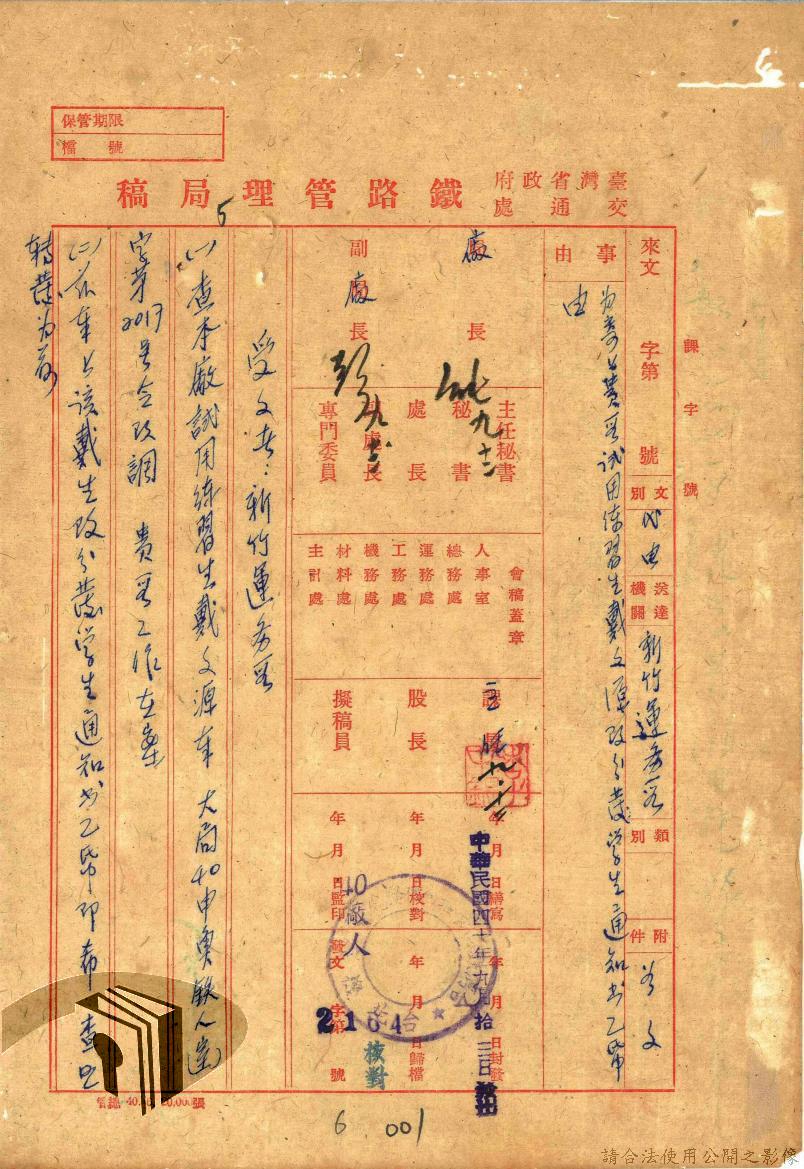 保管期限
檔號
臺灣省政府
交通處
鐵路管理局稿
5
課字號
來文 字第 號
文別 代電
送達機關 新竹運務段
類別
附件 如文
事由 為寄 貴段試用練習生戴文源改分發學生通知書乙帋由
廠長
副廠長
主任秘書
秘書
處長
副處長
專門委員
九 十三
會稿蓋章
人事室
總務處
運務處
工務處
機務處
材料處
主計處
課長
股長
擬稿員
年月日繕寫
年月日校對
年月日監印
年月日封發
年月日歸檔
發文 字第 號
中華民國四十年九月拾三日 發出
40廠人
2164
核對
受文者：新竹運務段
(一)查本廠試用練習生戴文源奉 大局40申 鐵人
字第2017号令改調 貴段工作在案
(二)茲奉上該戴生改分發學生通知書乙帋即希查照
轉發為荷
6 001
請合法使用公開之影像